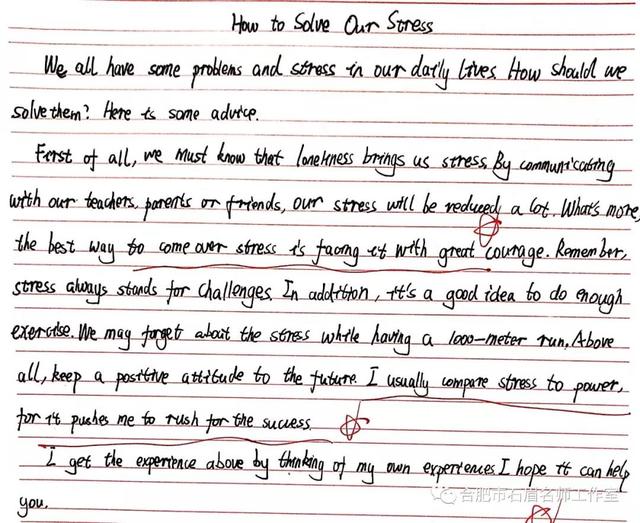 How to Solve Our Stress
We all have some problems and stress in our daily lives. How should we
solve them? Here is some advice.
First of all, we must know that loneliness brings us stress. By communicating
with our teachers, parents or friends, our stress will be reduced a lot. What's more,
the best way to come over stress is facing it with great courage. Remember,
stress always stands for challenges. In addition, it's a good idea to do enough
exercise. We may forget about the stress while having a 1000-meter run. Above
all, keep a positive attitude to the future. I usually compare stress to power,
for it pushes me to rush for the success.
I get the experience above by thinking of my own experiences. I hope it can help
you.
合肥市石眉名师工作室